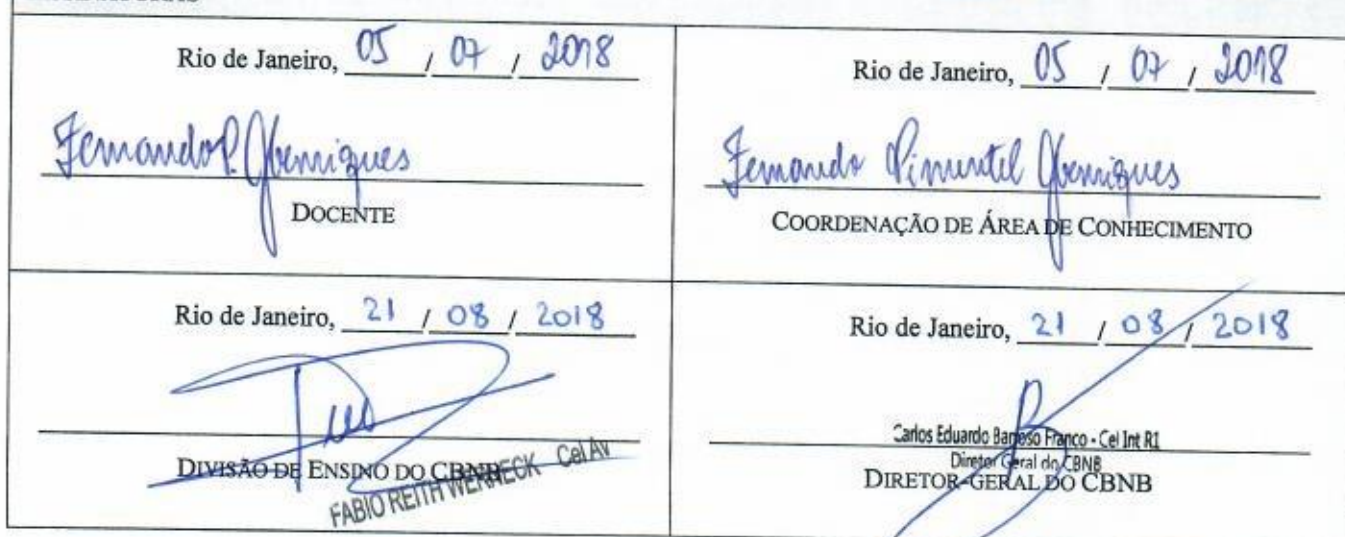 Rio de Janeiro, 05 / 07 / 2018
Fernando P. Henriques
DOCENTE
Rio de Janeiro, 05 / 07 / 2018
Fernando Pimentel Henriques
COORDENAÇÃO DE ÁREA DE CONHECIMENTO
Rio de Janeiro, 21 / 08 / 2018
DIVISÃO DE ENSINO DO CBNB
FABIO REITH WERNECK Cel Av
Rio de Janeiro, 21 / 08 / 2018
Carlos Eduardo Barroso Franco - Cel Int R1
Diretor Geral do CBNB
DIRETOR-GERAL DO CBNB